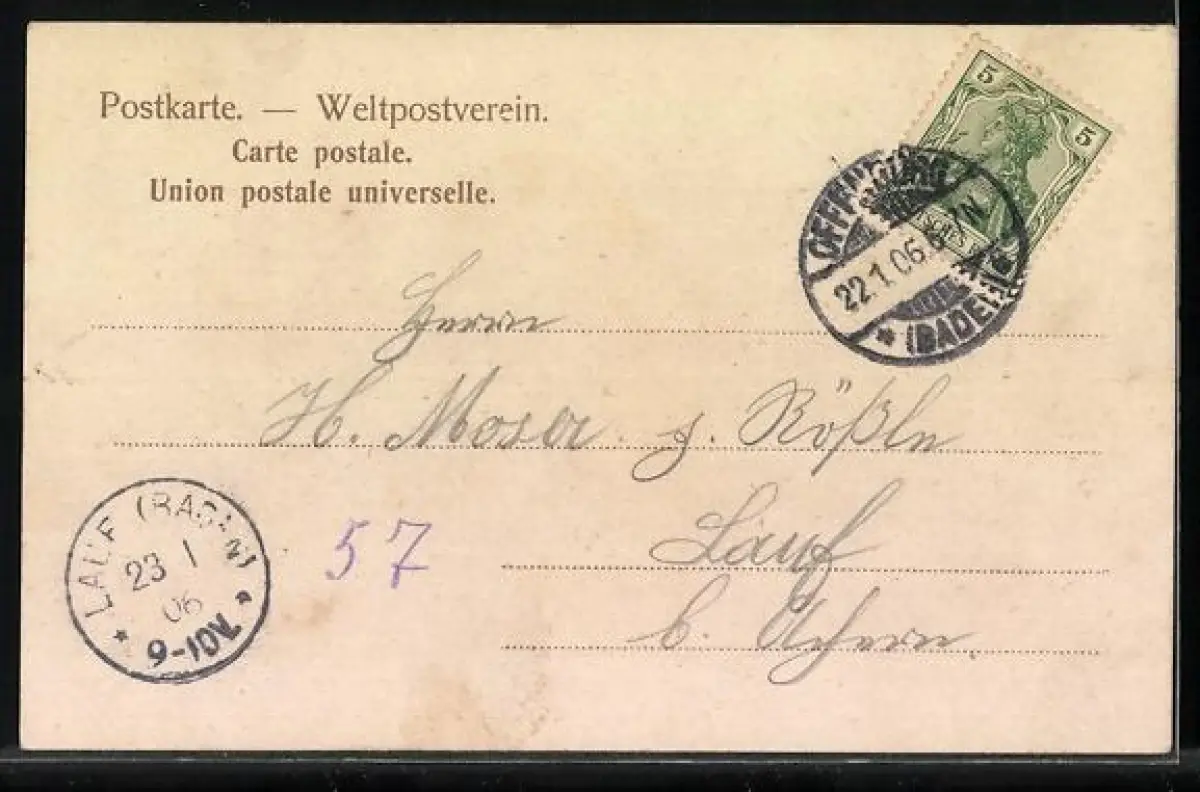 Postkarte. — Weltpostverein.
Carte postale.
Union postale universelle.
5 5
OFFENBURG
22.1.06. 6-7N
* (BADEN) *
Herrn
H. Moser z. Rößle
Lauf
b. Achern
57
* LAUF (BADEN) *
23 1
06
9-10V.